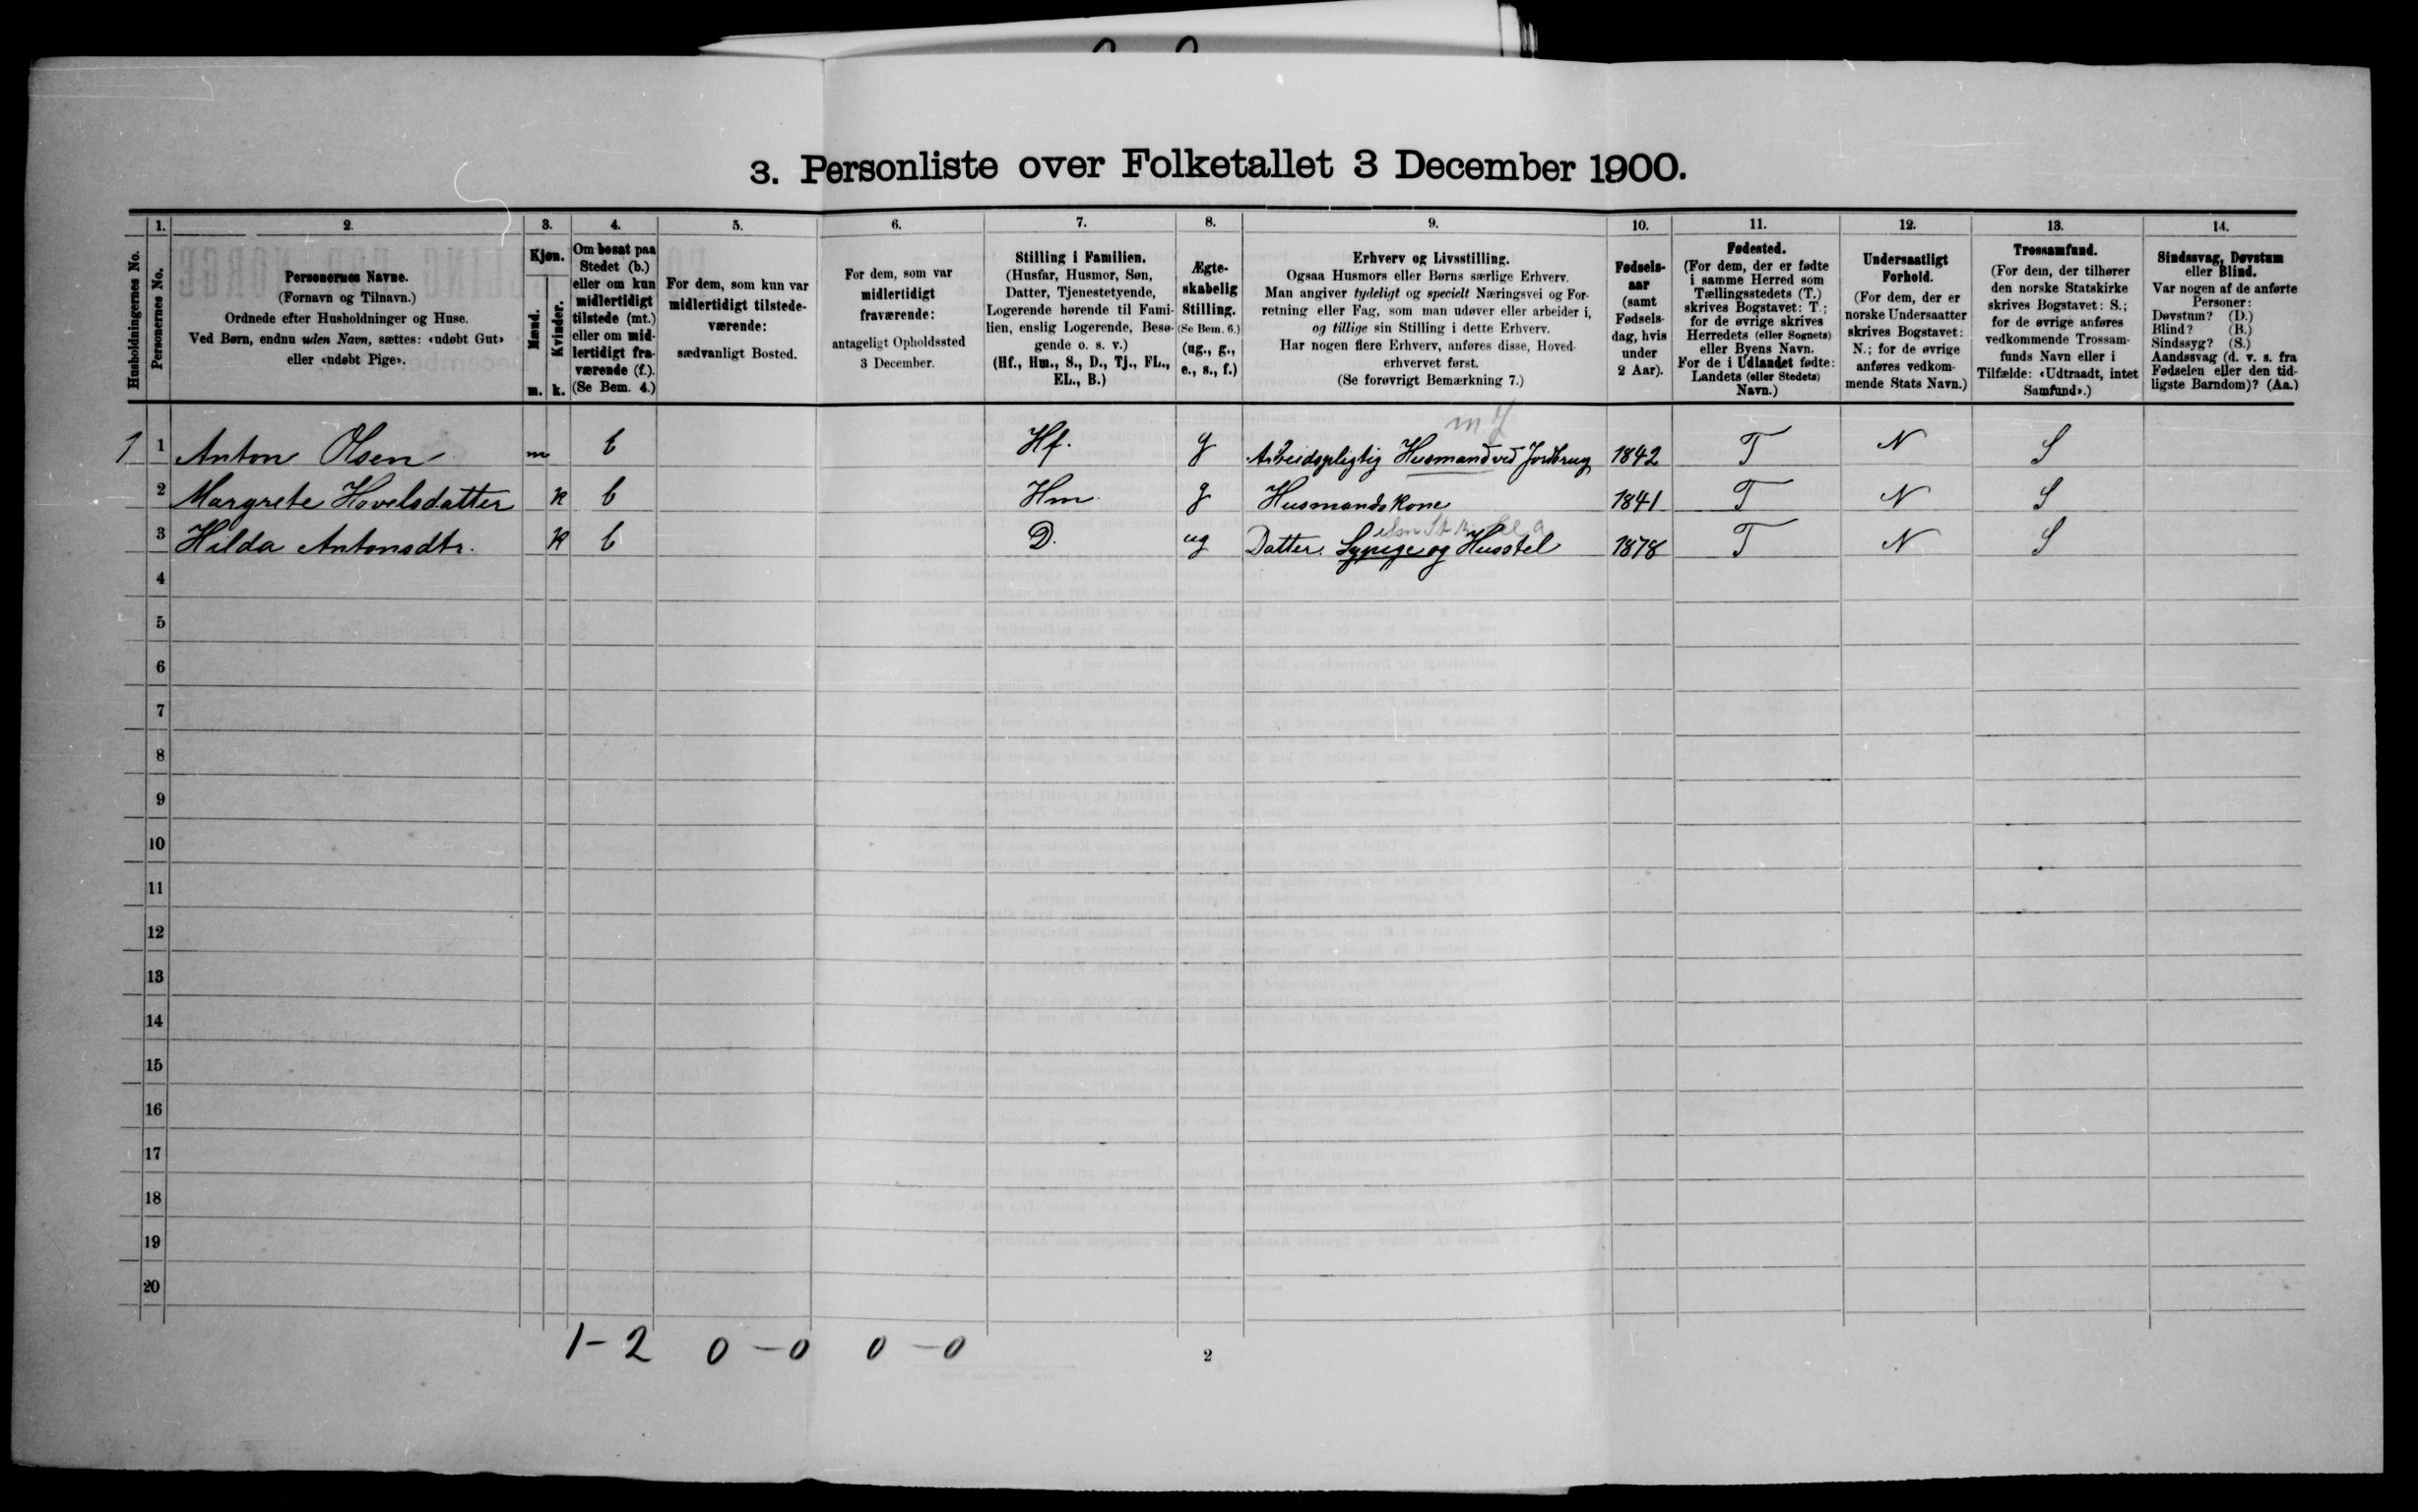 3. Personliste over Folketallet 3 December 1900.
Husholdningernes No.
1.
Personernes No.
2.
Personernes Navne.
(Fornavn og Tilnavn.)
Ordnede efter Husholdninger og Huse.
Ved Børn, endnu uden Navn, sættes: «udøbt Gut»
eller «udøbt Pige».
3.
Kjøn.
Mænd.
Kvinder.
m. k.
4.
Om bosat paa
Stedet (b.)
eller om kun
midlertidigt
tilstede (mt.)
eller om mid-
lertidigt fra-
værende (f.).
(Se Bem. 4.)
5.
For dem, som kun var
midlertidigt tilstede-
værende:
sædvanligt Bosted.
6.
For dem, som var
midlertidigt
fraværende:
antageligt Opholdssted
3 December.
7.
Stilling i Familien.
(Husfar, Husmor, Søn,
Datter, Tjenestetyende,
Logerende hørende til Fami-
lien, enslig Logerende, Besø-
gende o. s. v.)
(Hf., Hm., S., D., Tj., FL.,
EL., B.)
8.
Ægte-
skabelig
Stilling.
(Se Bem. 6.)
(ug., g.,
e., s., f.)
9.
Erhverv og Livsstilling.
Ogsaa Husmors eller Børns særlige Erhverv.
Man angiver tydeligt og specielt Næringsvei og For-
retning eller Fag, som man udøver eller arbeider i,
og tillige sin Stilling i dette Erhverv.
Har nogen flere Erhverv, anføres disse, Hoved-
erhvervet først.
(Se forøvrigt Bemærkning 7.)
10.
Fødsels-
aar
(samt
Fødsels-
dag, hvis
under
2 Aar).
11.
Fødested.
(For dem, der er fødte
i samme Herred som
Tællingsstedets (T.)
skrives Bogstavet: T.;
for de øvrige skrives
Herredets (eller Sognets)
eller Byens Navn.
For de i Udlandet fødte:
Landets (eller Stedets)
Navn.)
12.
Undersaatligt
Forhold.
(For dem, der er
norske Undersaatter
skrives Bogstavet:
N.; for de øvrige
anføres vedkom-
mende Stats Navn.)
13.
Trossamfund.
(For dem, der tilhører
den norske Statskirke
skrives Bogstavet: S.;
for de øvrige anføres
vedkommende Trossam-
funds Navn eller i
Tilfælde: «Udtraadt, intet
Samfund».)
14.
Sindssvag, Døvstum
eller Blind.
Var nogen af de anførte
Personer:
Døvstum? (D.)
Blind? (B.)
Sindssyg? (S.)
Aandssvag (d. v. s. fra
Fødselen eller den tid-
ligste Barndom)? (Aa.)
1 1 Anton Olsen m b Hf. g Arbeidspligtig Husmand ved Jordbrug 1842 T N S
2 Margrete Hovelsdatter k b Hm g Husmandskone 1841 T N S
3 Hilda Antonsdtr. k b D. ug Datter. Sypige og Husstel 1878 T N S
4
5
6
7
8
9
10
11
12
13
14
15
16
17
18
19
20
1-2 0-0 0-0
2